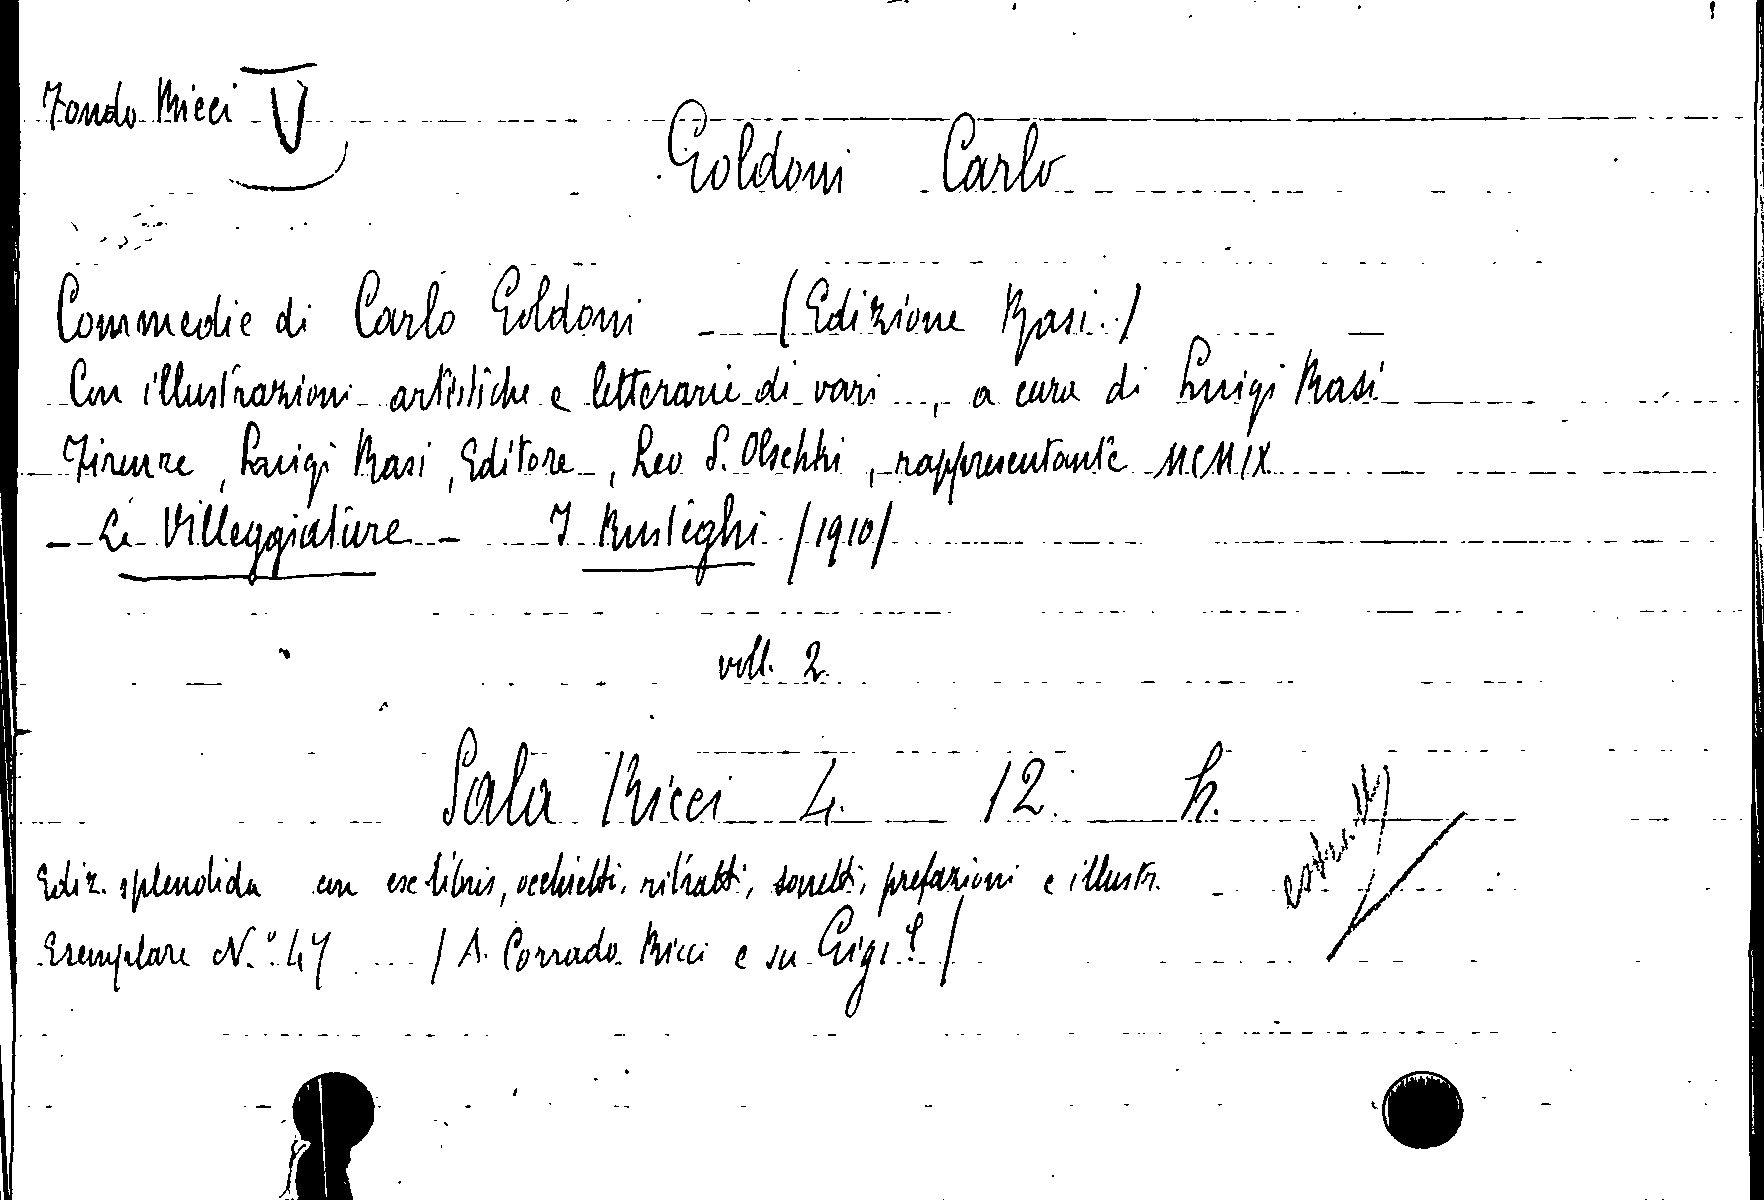 Fondo Ricci V
Goldoni Carlo
Commedie di Carlo Goldoni (Edizione Rasi.)
Con illustrazioni artistiche e letterarie di vari, a cura di Luigi Rasi
Firenze, Luigi Rasi, Editore, Leo S. Olschki, rappresentante MCMIX
- Le Villeggiature - I Rusteghi /1910/
voll. 2.
Sala Ricci 4. 12. h.
Ediz. splendida con ex libris, occhietti, ritratti, sonetti, prefazioni e illustr.
Esemplare N.° 47 / A. Corrado Ricci e su